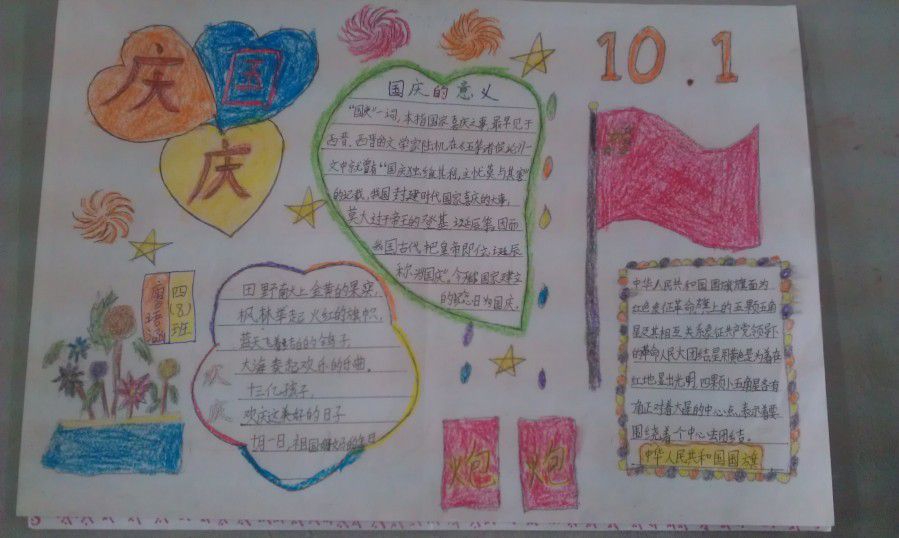 庆
国
庆
10.1
国庆的意义
"国庆"一词,本指国家喜庆之事,最早见于
西晋,西晋的文学家陆机在《五等诸侯论》一
文中就曾有"国庆独飨其利,主忧莫与其害"
的记载,我国封建时代国家喜庆的大事,
莫大过于帝王的登基、诞辰等,因而
我国古代把皇帝即位、诞辰
称为"国庆"。今天称国家建立
的纪念日为国庆。
四(8)班
田野献上金黄的果实,
枫林举起火红的旗帜,
蓝天飞着洁白的鸽子
大海奏起欢乐的乐曲。
十三亿孩子,
欢庆这美好的日子
十月一日,祖国妈妈的生日
欢
庆
中华人民共和国国旗旗面为
红色象征革命,旗上的五颗五角
星及其相互关系象征共产党领导下
的革命人民大团结,星用黄色是为着在
红地显出光明,四颗小五角星各有一
角正对着大星的中心点,表示着要
围绕着一个中心去团结。
中华人民共和国国旗
炮
炮